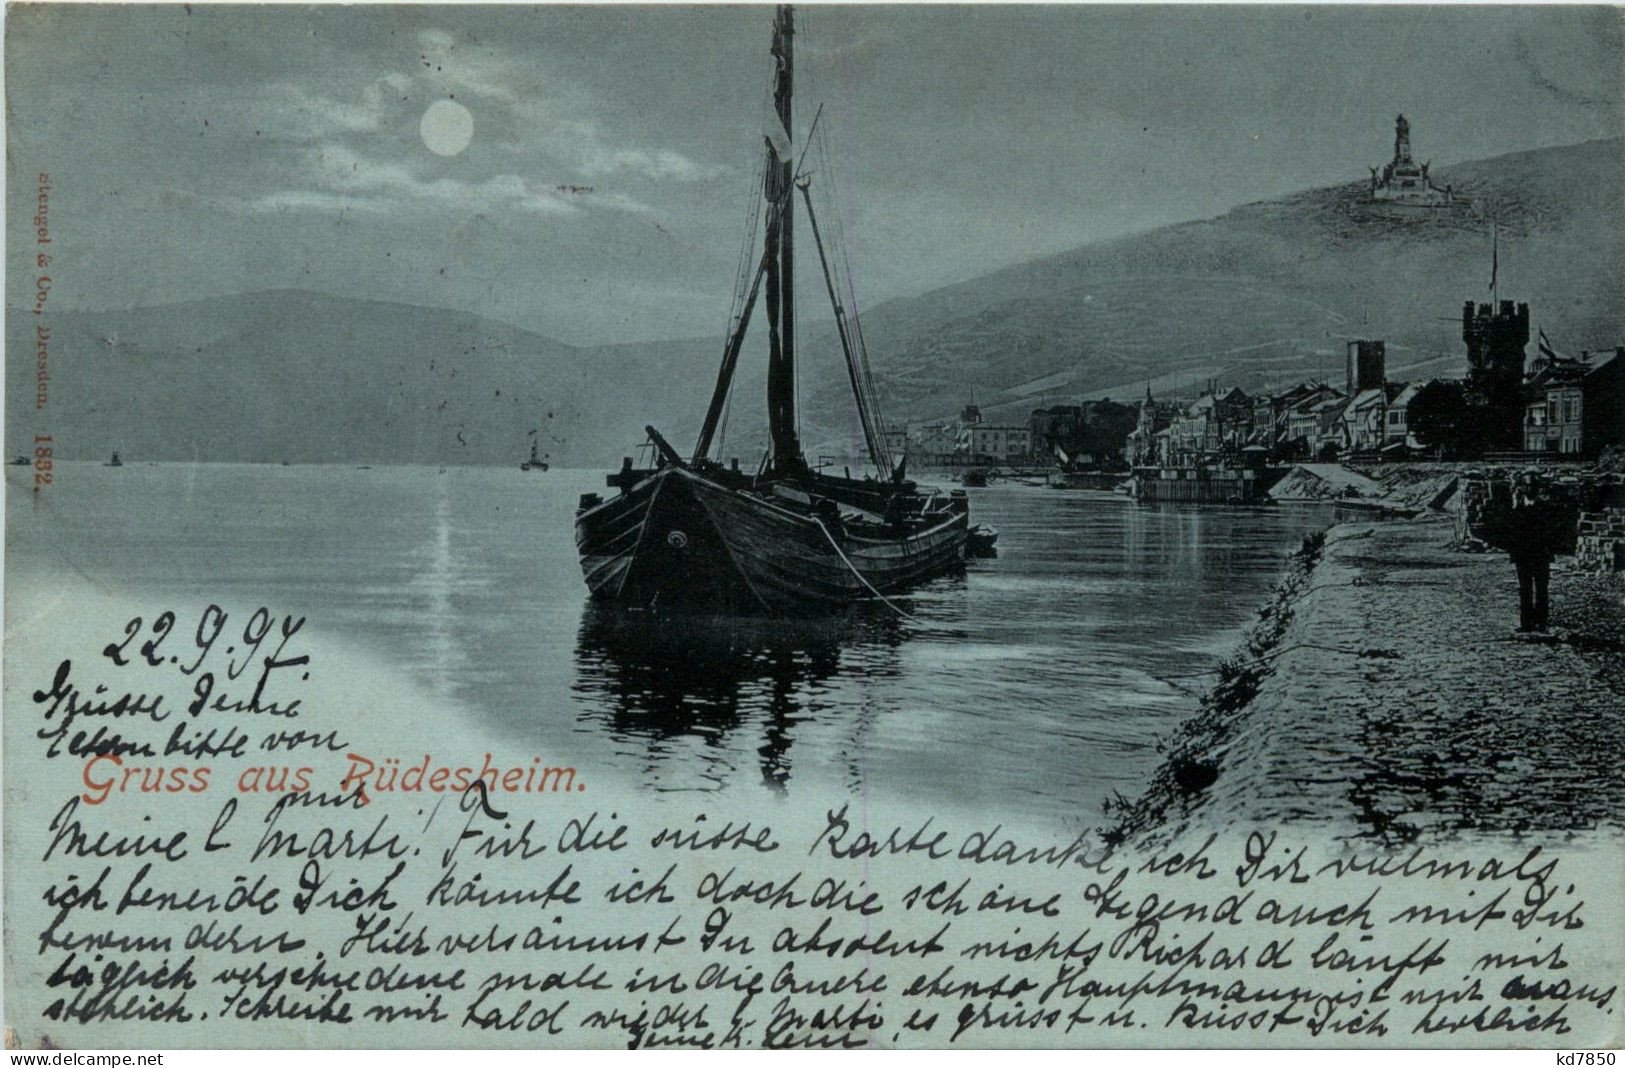 Stengel & Co., Dresden. 1832.
22.9.97
Grüsse Deine
Eltern bitte von
mir
Gruss aus Rüdesheim.
Meine l Marti! Für die süsse Karte danke ich Dir vielmals,
ich beneide Dich, könnte ich doch die schöne Gegend auch mit Dir
bewundern. Hier versäumst Du absolut nichts Richard läuft mir
täglich verschiedene male in die Quere ebenso Hauptmann ist mir aus
stehlich. Schreibe mir bald wieder l Marti, es grüsst u. küsst Dich herzlich
Deine k.
delcampe.net
kd7850